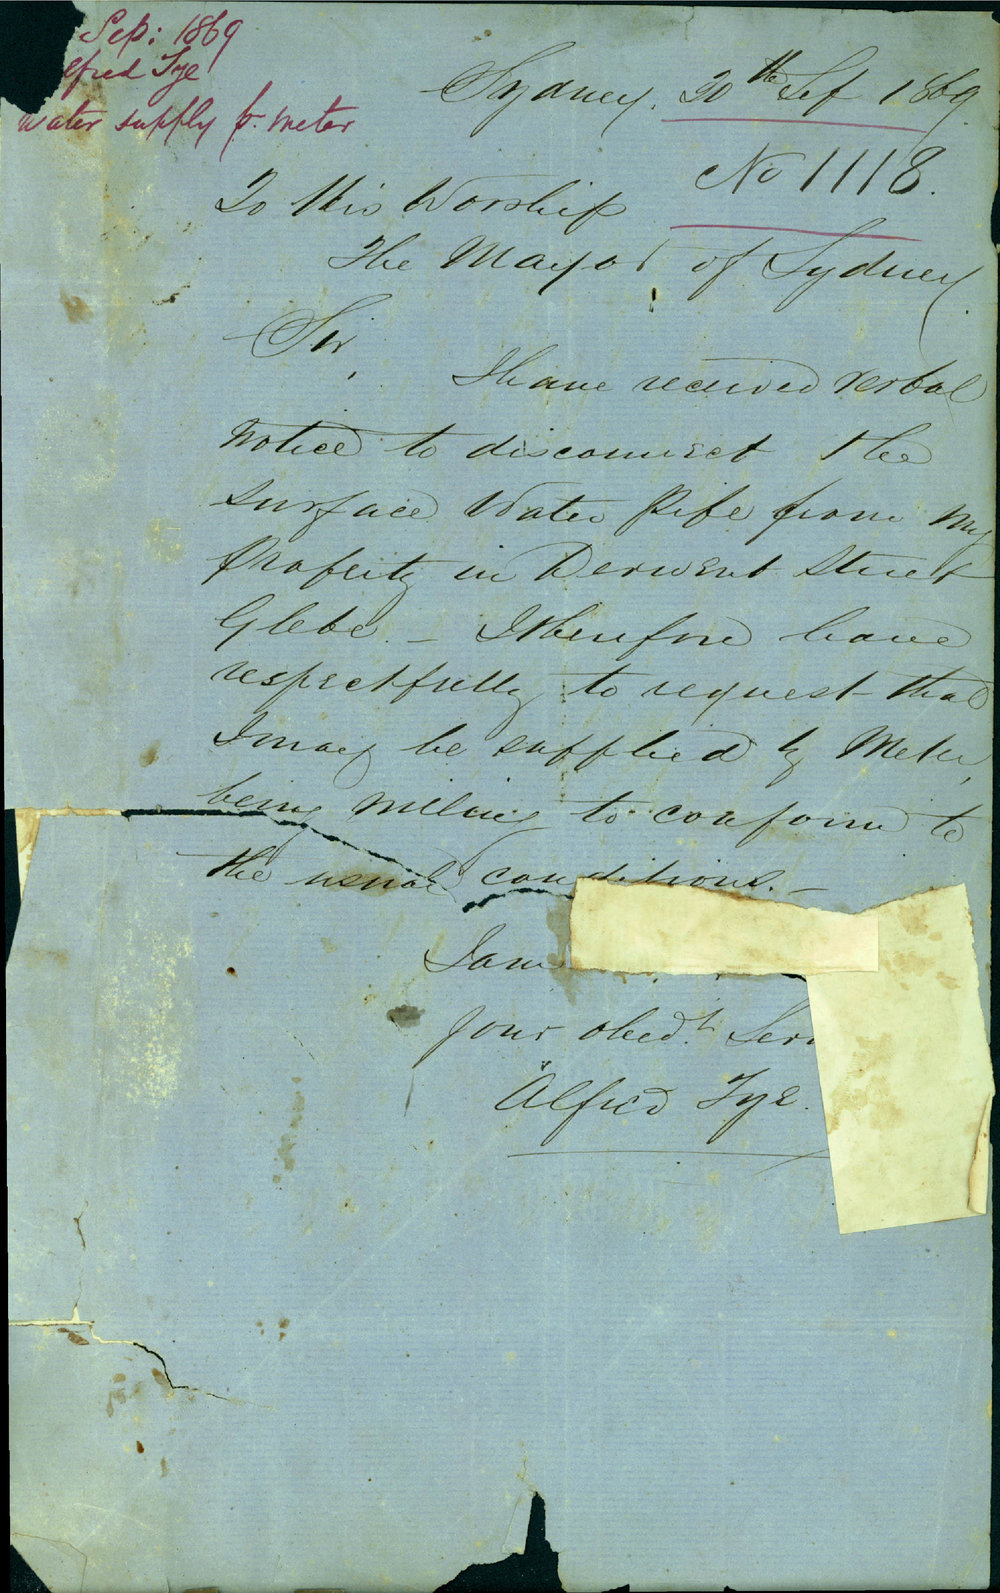 Sep: 1869
lfred Tye
water supply pr. meter
Sydney. 20th Sep 1869.
No 1118.
To His Worship
The Mayor of Sydney
Sir,
I have received verbal
notice to disconnect the
surface Water Pipe from my
property in Derwent Street
Glebe. – I therefore have
respectfully to request that
I may be supplied by Meter,
being willing to conform to
the usual conditions. –
I am
Your obedt. Serv
Alfred Tye.